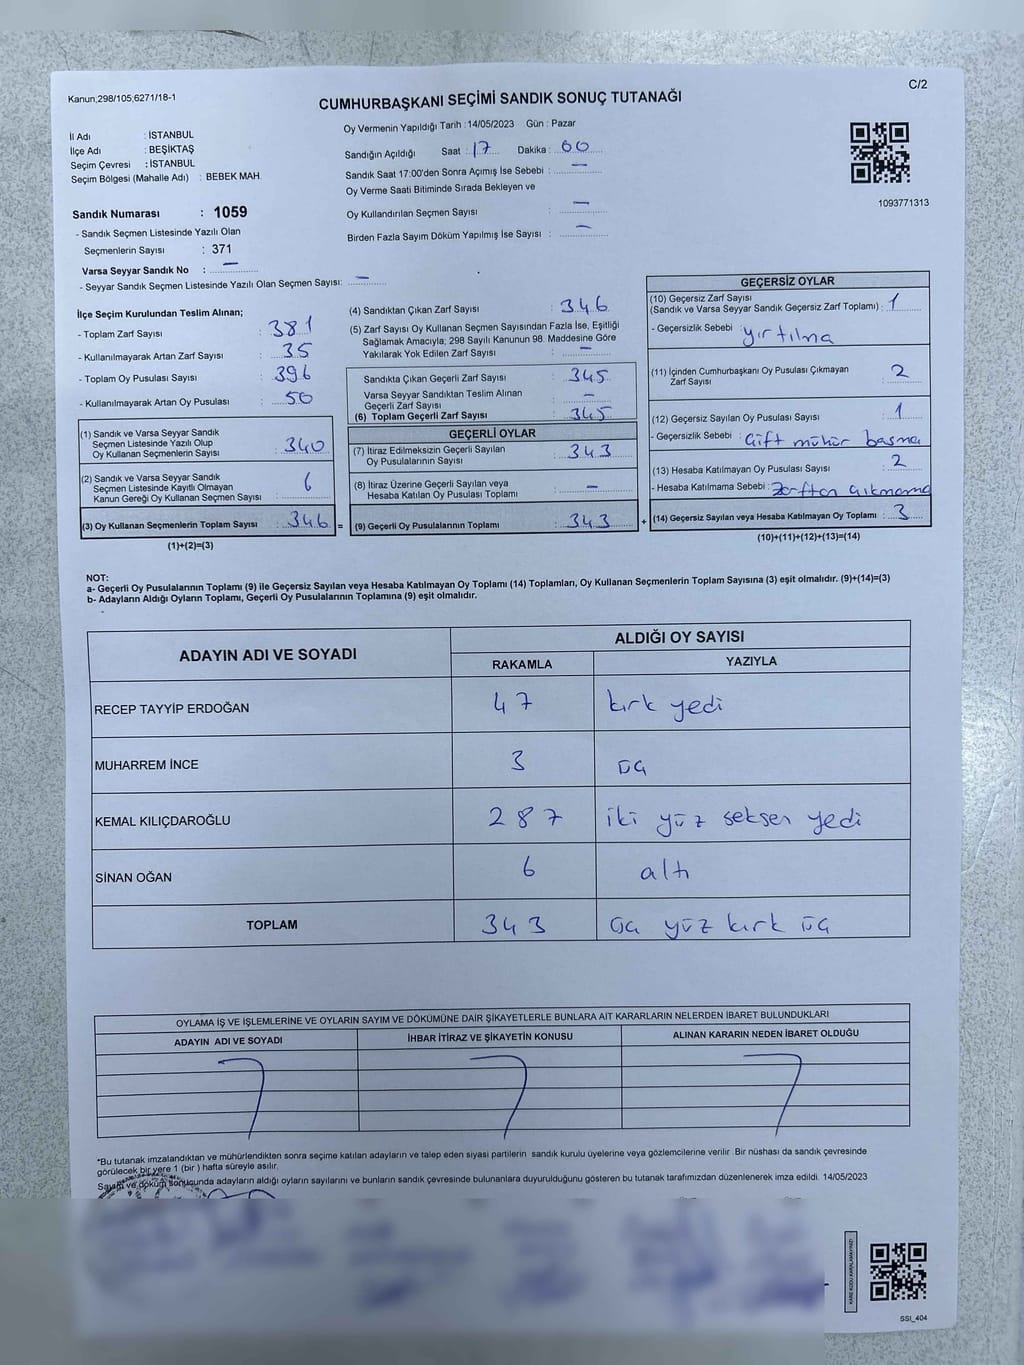 Kanun;298/105;6271/18-1
C/2
CUMHURBAŞKANI SEÇİMİ SANDIK SONUÇ TUTANAĞI
Oy Vermenin Yapıldığı Tarih :14/05/2023 Gün : Pazar
İl Adı : İSTANBUL
İlçe Adı : BEŞİKTAŞ
Seçim Çevresi : İSTANBUL
Seçim Bölgesi (Mahalle Adı) : BEBEK MAH.
Sandığın Açıldığı Saat : 17 Dakika : 00
Sandık Saat 17:00'den Sonra Açımış İse Sebebi : —
Oy Verme Saati Bitiminde Sırada Bekleyen ve
Oy Kullandırılan Seçmen Sayısı : —
Birden Fazla Sayım Döküm Yapılmış İse Sayısı : —
1093771313
Sandık Numarası : 1059
- Sandık Seçmen Listesinde Yazılı Olan
Seçmenlerin Sayısı : 371
Varsa Seyyar Sandık No : —
- Seyyar Sandık Seçmen Listesinde Yazılı Olan Seçmen Sayısı: —
İlçe Seçim Kurulundan Teslim Alınan;
- Toplam Zarf Sayısı : 381
- Kullanılmayarak Artan Zarf Sayısı : 35
- Toplam Oy Pusulası Sayısı : 396
- Kullanılmayarak Artan Oy Pusulası : 50
(1) Sandık ve Varsa Seyyar Sandık
Seçmen Listesinde Yazılı Olup
Oy Kullanan Seçmenlerin Sayısı : 340
(2) Sandık ve Varsa Seyyar Sandık
Seçmen Listesinde Kayıtlı Olmayan
Kanun Gereği Oy Kullanan Seçmen Sayısı : 6
(3) Oy Kullanan Seçmenlerin Toplam Sayısı : 346 =
(1)+(2)=(3)
(4) Sandıktan Çıkan Zarf Sayısı : 346
(5) Zarf Sayısı Oy Kullanan Seçmen Sayısından Fazla İse, Eşitliği
Sağlamak Amacıyla; 298 Sayılı Kanunun 98. Maddesine Göre
Yakılarak Yok Edilen Zarf Sayısı : —
Sandıkta Çıkan Geçerli Zarf Sayısı : 345
Varsa Seyyar Sandıktan Teslim Alınan
Geçerli Zarf Sayısı : —
(6) Toplam Geçerli Zarf Sayısı : 345
GEÇERLİ OYLAR
(7) İtiraz Edilmeksizin Geçerli Sayılan
Oy Pusulalarının Sayısı : 343
(8) İtiraz Üzerine Geçerli Sayılan veya
Hesaba Katılan Oy Pusulaları Toplamı : —
(9) Geçerli Oy Pusulalarının Toplamı : 343 +
GEÇERSİZ OYLAR
(10) Geçersiz Zarf Sayısı
(Sandık ve Varsa Seyyar Sandık Geçersiz Zarf Toplamı) : 1
- Geçersizlik Sebebi : yırtılma
(11) İçinden Cumhurbaşkanı Oy Pusulası Çıkmayan
Zarf Sayısı : 2
(12) Geçersiz Sayılan Oy Pusulası Sayısı : 1
- Geçersizlik Sebebi : Çift mühür basma
(13) Hesaba Katılmayan Oy Pusulası Sayısı : 2
- Hesaba Katılmama Sebebi : Zarftan çıkmama
(14) Geçersiz Sayılan veya Hesaba Katılmayan Oy Toplamı : 3
(10)+(11)+(12)+(13)=(14)
NOT:
a- Geçerli Oy Pusulalarının Toplamı (9) ile Geçersiz Sayılan veya Hesaba Katılmayan Oy Toplamı (14) Toplamları, Oy Kullanan Seçmenlerin Toplam Sayısına (3) eşit olmalıdır. (9)+(14)=(3)
b- Adayların Aldığı Oyların Toplamı, Geçerli Oy Pusulalarının Toplamına (9) eşit olmalıdır.
ADAYIN ADI VE SOYADI
ALDIĞI OY SAYISI
RAKAMLA YAZIYLA
RECEP TAYYİP ERDOĞAN 47 kırk yedi
MUHARREM İNCE 3 üç
KEMAL KILIÇDAROĞLU 287 iki yüz seksen yedi
SİNAN OĞAN 6 altı
TOPLAM 343 üç yüz kırk üç
OYLAMA İŞ VE İŞLEMLERİNE VE OYLARIN SAYIM VE DÖKÜMÜNE DAİR ŞİKAYETLERLE BUNLARA AİT KARARLARIN NELERDEN İBARET BULUNDUKLARI
ADAYIN ADI VE SOYADI İHBAR İTİRAZ VE ŞİKAYETİN KONUSU ALINAN KARARIN NEDEN İBARET OLDUĞU
*Bu tutanak imzalandıktan ve mühürlendikten sonra seçime katılan adayların ve talep eden siyasi partilerin sandık kurulu üyelerine veya gözlemcilerine verilir .Bir nüshası da sandık çevresinde
görülecek bir yere 1 (bir ) hafta süreyle asılır.
Sayım ve döküm sonucunda adayların aldığı oyların sayılarını ve bunların sandık çevresinde bulunanlara duyurulduğunu gösteren bu tutanak tarafımızdan düzenlenerek imza edildi. 14/05/2023
KARE KODU KARALAMAYINIZ!
SSI_404